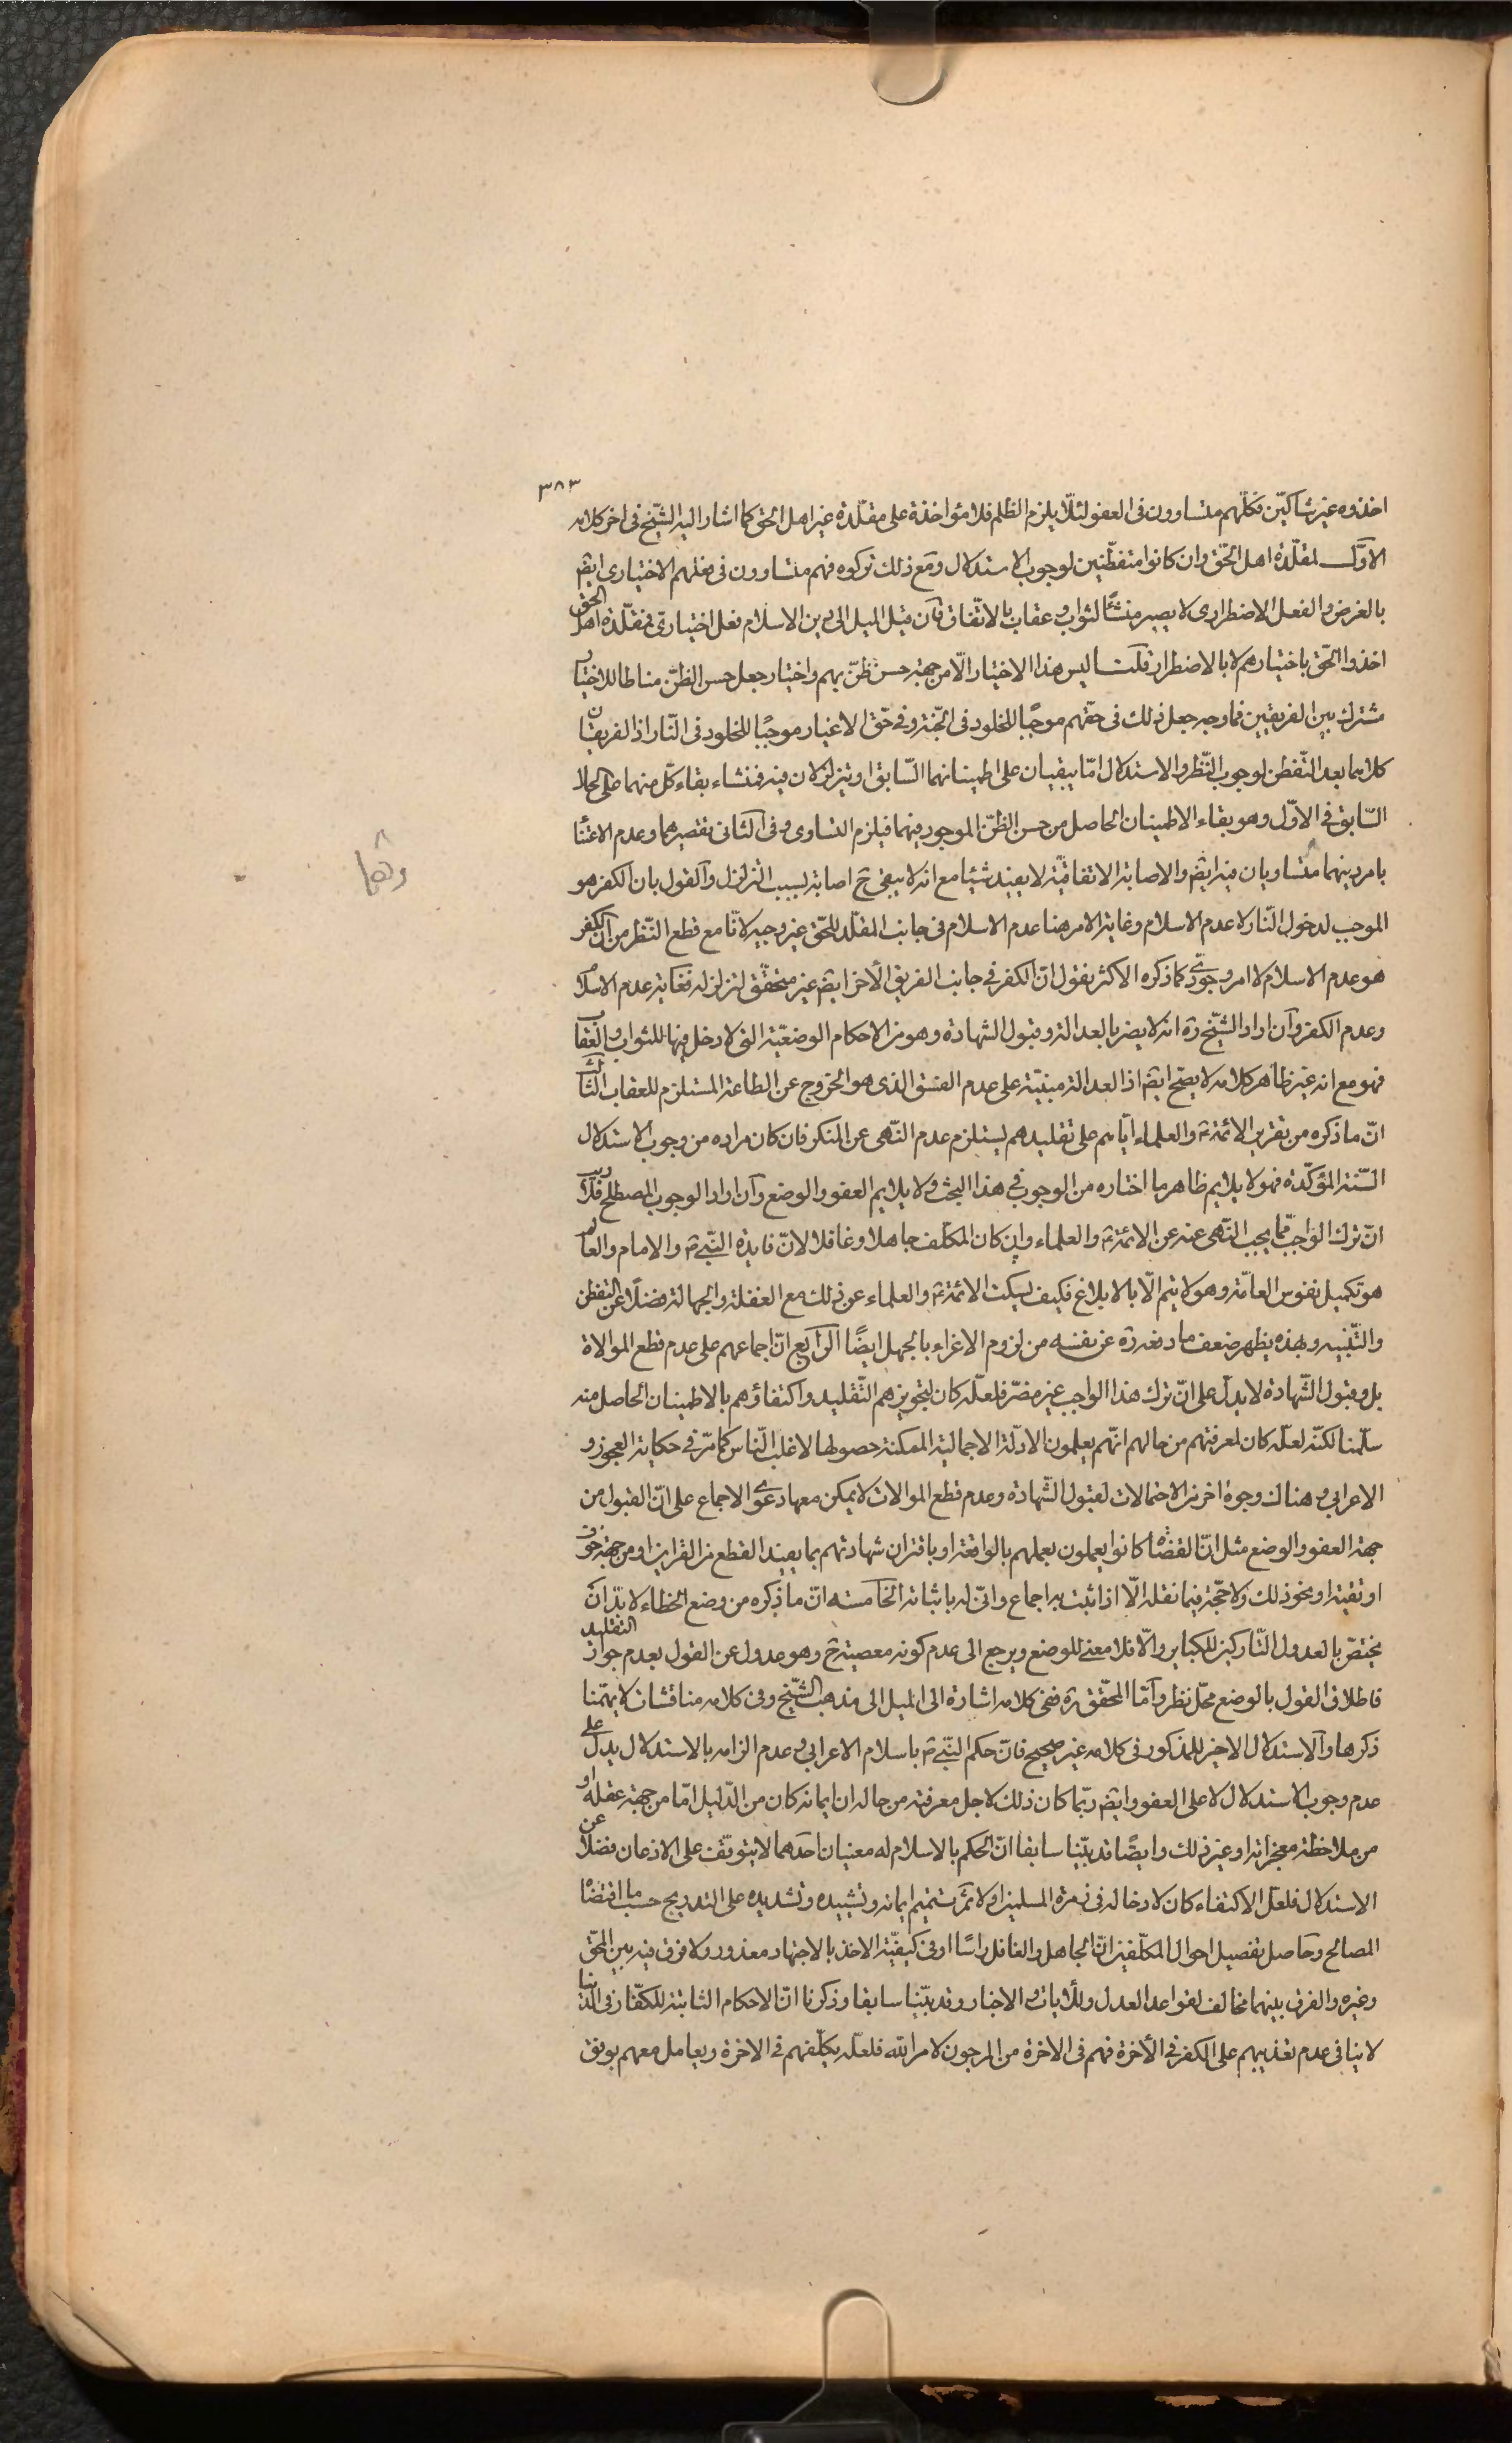 ٣٨٣
اخذوه غير شاكّين فكلّهم متساوون فى العفو لئلّا يلزم الظلم فلا مؤاخذة على مقلّدة غير اهل الحق كما اشار اليه الشيّخ فى اخر كلامه
الاوّل لمقلّدة اهل الحّق وان كانوا متفطّنين لوجوب الاستدلال ومع ذلك تركوه فهم متساوون فى فعلهم الاختيارى ايضّ
بالغرض والفعل الاضطرارى لا يصير منشئا لثواب وعقاب بالاتّفاق فان قيل الميل الى دين الاسلام فعل اختيارى فمقلّدة اهل الحق
اخذوا الحّق باختيارهم لا بالاضطرار قلت ليس هذا الاختيار الّا من جهة حسن ظنّ بهم واختيار جعل حسن الظنّ مناطا للاختيار
مشترك بين الفريقين فما وجه جعل ذلك فى حقّهم موجبًا للخلود فى الجّنة وفى حّق الاغيار موجبًا للخلود فى النّار اذ الفريقان
كلاهما بعد التّفطن لوجوب النّظر والاستدلال امّا يبقيان على اطمينانهما السّابق او يتزلزلان فيه فمنشاء بقاء كلّ منهما على الحال
السّابق فى الاوّل وهو بقاء الاطمينان الحاصل من حسن الظنّ الموجود فيهما فيلزم التساوى وفى الثانى تقصيرهما وعدم الاعتنا
بامر دينهما متساويان فيه ايضّ والاصابة الاتفاقيّة لا يفيد شيئا مع انه لا يبقى ح اصابة بسبب التزلزل والقول بان الكفر هو
وهما
الموجب لدخول النّار لا عدم الاسلام وغاية الامر هنا عدم الاسلام فى جانب المقلّد للحّق غير وجيه لانّا مع قطع النّظر من انّ الكفر
هو عدم الاسلام لا امر وجودّى كما ذكره الاكثر نقول انّ الكفر فى جانب الفريق الأخر ايضّ غير متحقّق لتزلزله فغاية عدم الاسلام
وعدم الكفر وان اراد الشيّخ ره انه لا يضر بالعدالة وقبول الشهادة وهو من الاحكام الوضعيّة التى لا دخل فيها للثواب والعقاب
فهو مع انه غير ظاهر كلامه لا يصّح ايضّ اذ العدالة مبنيّة على عدم الفسق الذى هو الخروج عن الطاعة المستلزم للعقاب الثالث
انّ ما ذكره من تقرير الائمّة ع والعلماء ايّاهم على تقليدهم يستلزم عدم النّهى عن المنكر فان كان مراده من وجوب الاستدلال
السّنة المؤكّدة فهو لا يلايم ظاهر ما اختاره من الوجوب فى هذا البحث ولا يلايم العفو والوضع وان اراد الوجوب المصطلح فلا ريب
انّ ترك الواجب ممّا يجب النّهى عنه عن الائمّة ع والعلماء وان كان المكلّف جاهلا وغافلا لانّ فايدة النّبى ص والامام والعالم
هو تكميل نفوس العامّة وهو لا يتم الّا بالابلاغ فكيف يسكت الائمّة ع والعلماء عن ذلك مع الغفلة والجهالة فضلًا عن التفطن
والتّنبيه وبهذه يظهر ضعف ما دفعه ره عن نفسه من لزوم الاغراء بالجهل ايضًا الرابع انّ اجماعهم على عدم قطع الموالاة
بل وقبول الشّهادة لا يدلّ على انّ ترك هذا الواجب غير مضرّ فلعلّه كان لتجويزهم التّقليد واكتفاؤهم بالاطمينان الحاصل منه
سلّمنا لكنّه لعلّه كان لمعرفتهم من حالهم انّهم يعلمون الادلّة الاجمالية الممكنة حصولها لاغلب النّاس كما مرّ فى حكاية العجوز و
الاعرابى وهناك وجوهٔ اخر من الاحتمالات لقبول الشّهادة وعدم قطع الموالات لا يمكن معها دعوى الاجماع على انّ القبول من
جهة العفو والوضع مثل انّ القضٰاة كانوا يعملون بعملهم بالواقعة او باقتران شهادتهم بما يفيد القطع من القراين او من جهة خوف
او تقية او نحو ذلك ولا حجّة فيما نقله الّا اذا ثبت به اجماع وانّى له باثباته الخامسة انّ ما ذكره من وضع الخطاء لا بدّ ان
يختصّ بالعدول التّاركين للكباير والّا فلا معنى للوضع ويرجع الى عدم كونه معصية ح وهو عدول عن القول بعدم جواز التقليد
فاطلاق القول بالوضع محلّ نظر وامّا المحّقق ره ففى كلامه اشارة الى الميل الى مذهب الشّيخ وفى كلامه مناقشات لا يهمّنا
ذكرها والاستدلال الاخير للمذكور فى كلامه غير صحيح فانّ حكم النّبى ص باسلام الاعرابى وعدم الزامه بالاستدلال يدلّ على
عدم وجوب الاستدلال لا على العفو وايضّ ربّما كان ذلك لاجل معرفته من حاله ان ايمانه كان من الدّليل امّا من جهة عقله او
من ملاحظة معجزاته او غير ذلك وايضًا قد بيّنا سابقا انّ الحكم بالاسلام له معنيان احدهما لا يتوقّف على الاذعان فضلا عن
الاستدلال فلعلّ الاكتفاء كان لادخاله فى زمرة المسلمين اولا ثمّ تتميم ايمانه وتشييده وتشديده على التدريج حسب ما اقتضاه
المصالح وحاصل تفصيل احوال المكلّفين انّ الجاهل والغافل راسًا او فى كيفيّة الاخذ بالاجتهاد معذور ولا فرق فيه بين المحّق
وغيره والفرق بينهما مخالف لقواعد العدل وللأيات والاخبار وقد بيّنا سابقا وذكرنا انّ الاحكام الثابتة للكفّار فى الدّنيا
لا ينافى عدم تعذيبهم على الكفر فى الأخرة فهم فى الاخرة من المرجون لامر الله فلعلّه يكلّفهم فى الاخرة ويعامل معهم بوفق